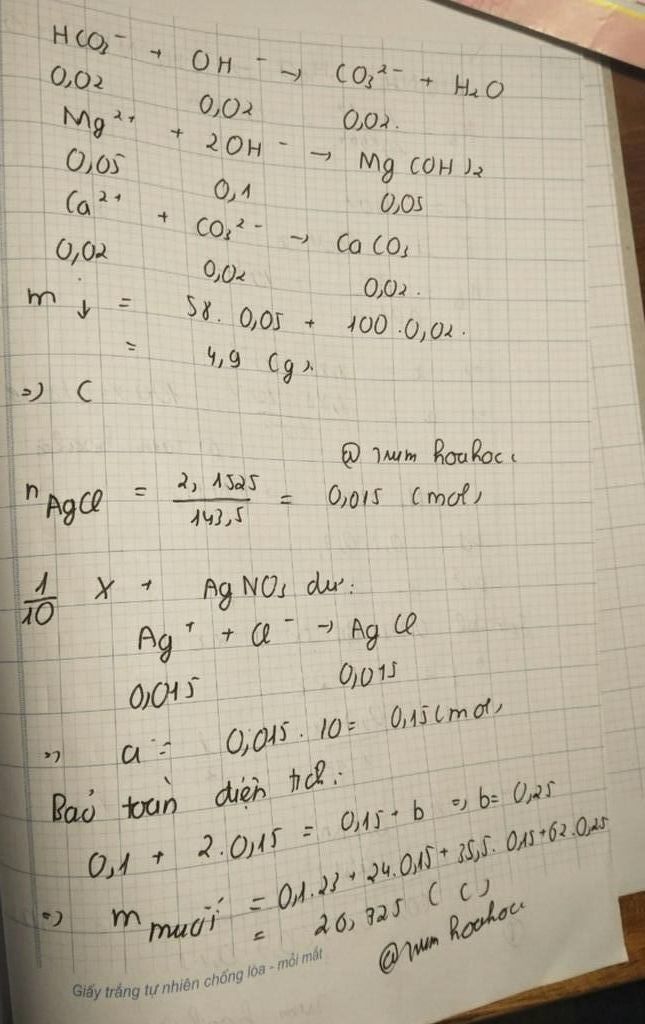 HCO₃⁻ + OH⁻ → CO₃²⁻ + H₂O
0,02 0,02 0,02.
Mg²⁺ + 2OH⁻ → Mg(OH)₂
0,05 0,1 0,05
Ca²⁺ + CO₃²⁻ → CaCO₃
0,02 0,02 0,02.
m↓ = 58. 0,05 + 100.0,02.
= 4,9 (g).
=) C
@ num hoahoc
n AgCl = 2,1525 / 143,5 = 0,015 (mol)
1/10 X + AgNO₃ dư:
Ag⁺ + Cl⁻ → AgCl
0,015 0,015
=) a = 0,015. 10 = 0,15 (mol)
Bảo toàn điện tích:
0,1 + 2.0,15 = 0,15 + b =) b = 0,25
=) m muối = 0,1.23 + 24.0,15 + 35,5. 0,15 + 62.0,25
= 26,725 (C)
@num hoahoc
Giấy trắng tự nhiên chống lóa - mỏi mắt